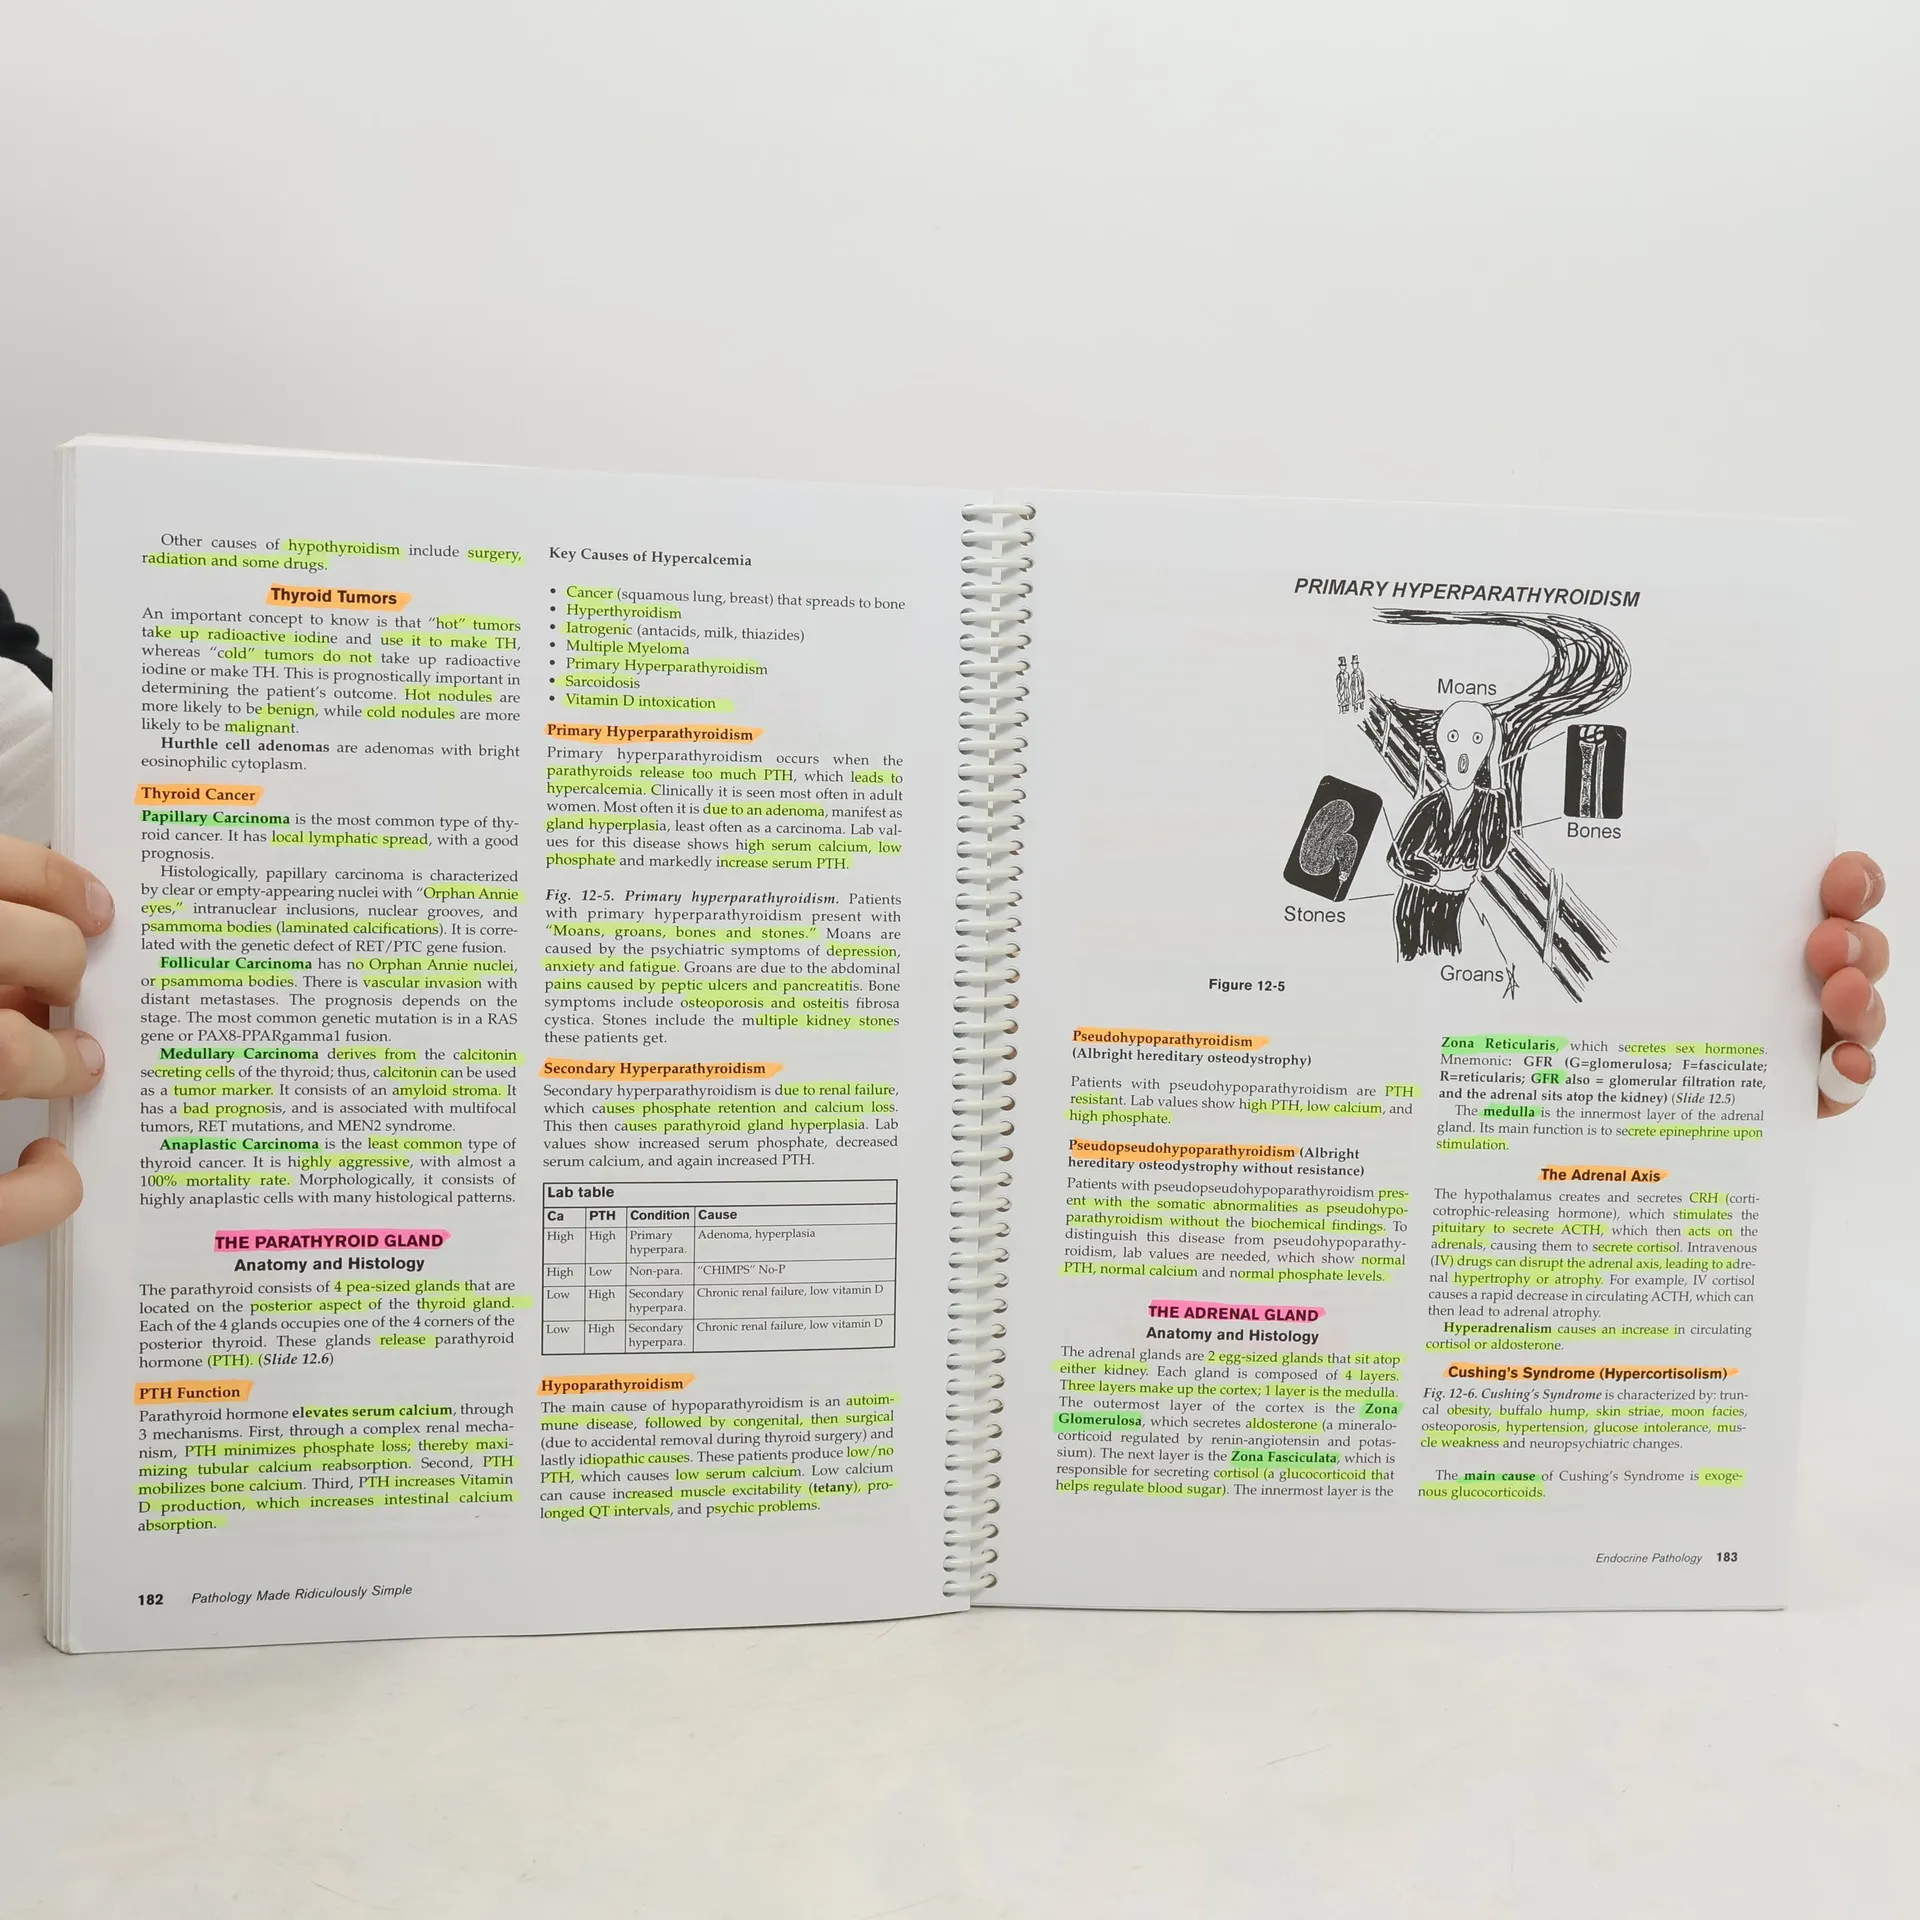 Other causes of hypothyroidism include surgery,
radiation and some drugs.
Thyroid Tumors
An important concept to know is that "hot" tumors
take up radioactive iodine and use it to make TH,
whereas "cold" tumors do not take up radioactive
iodine or make TH. This is prognostically important in
determining the patient's outcome. Hot nodules are
more likely to be benign, while cold nodules are more
likely to be malignant.
Hurthle cell adenomas are adenomas with bright
eosinophilic cytoplasm.
Thyroid Cancer
Papillary Carcinoma is the most common type of thy-
roid cancer. It has local lymphatic spread, with a good
prognosis.
Histologically, papillary carcinoma is characterized
by clear or empty-appearing nuclei with "Orphan Annie
eyes," intranuclear inclusions, nuclear grooves, and
psammoma bodies (laminated calcifications). It is corre-
lated with the genetic defect of RET/PTC gene fusion.
Follicular Carcinoma has no Orphan Annie nuclei,
or psammoma bodies. There is vascular invasion with
distant metastases. The prognosis depends on the
stage. The most common genetic mutation is in a RAS
gene or PAX8-PPARgamma1 fusion.
Medullary Carcinoma derives from the calcitonin
secreting cells of the thyroid; thus, calcitonin can be used
as a tumor marker. It consists of an amyloid stroma. It
has a bad prognosis, and is associated with multifocal
tumors, RET mutations, and MEN2 syndrome.
Anaplastic Carcinoma is the least common type of
thyroid cancer. It is highly aggressive, with almost a
100% mortality rate. Morphologically, it consists of
highly anaplastic cells with many histological patterns.
THE PARATHYROID GLAND
Anatomy and Histology
The parathyroid consists of 4 pea-sized glands that are
located on the posterior aspect of the thyroid gland.
Each of the 4 glands occupies one of the 4 corners of the
posterior thyroid. These glands release parathyroid
hormone (PTH). (Slide 12.6)
PTH Function
Parathyroid hormone elevates serum calcium, through
3 mechanisms. First, through a complex renal mecha-
nism, PTH minimizes phosphate loss; thereby maxi-
mizing tubular calcium reabsorption. Second, PTH
mobilizes bone calcium. Third, PTH increases Vitamin
D production, which increases intestinal calcium
absorption.
182 Pathology Made Ridiculously Simple
Key Causes of Hypercalcemia
• Cancer (squamous lung, breast) that spreads to bone
• Hyperthyroidism
• Iatrogenic (antacids, milk, thiazides)
• Multiple Myeloma
• Primary Hyperparathyroidism
• Sarcoidosis
• Vitamin D intoxication
Primary Hyperparathyroidism
Primary hyperparathyroidism occurs when the
parathyroids release too much PTH, which leads to
hypercalcemia. Clinically it is seen most often in adult
women. Most often it is due to an adenoma, manifest as
gland hyperplasia, least often as a carcinoma. Lab val-
ues for this disease shows high serum calcium, low
phosphate and markedly increase serum PTH.
Fig. 12-5. Primary hyperparathyroidism. Patients
with primary hyperparathyroidism present with
"Moans, groans, bones and stones." Moans are
caused by the psychiatric symptoms of depression,
anxiety and fatigue. Groans are due to the abdominal
pains caused by peptic ulcers and pancreatitis. Bone
symptoms include osteoporosis and osteitis fibrosa
cystica. Stones include the multiple kidney stones
these patients get.
Secondary Hyperparathyroidism
Secondary hyperparathyroidism is due to renal failure,
which causes phosphate retention and calcium loss.
This then causes parathyroid gland hyperplasia. Lab
values show increased serum phosphate, decreased
serum calcium, and again increased PTH.
Lab table
Ca PTH Condition Cause
High High Primary hyperpara. Adenoma, hyperplasia
High Low Non-para. "CHIMPS" No-P
Low High Secondary hyperpara. Chronic renal failure, low vitamin D
Low High Secondary hyperpara. Chronic renal failure, low vitamin D
Hypoparathyroidism
The main cause of hypoparathyroidism is an autoim-
mune disease, followed by congenital, then surgical
(due to accidental removal during thyroid surgery) and
lastly idiopathic causes. These patients produce low/no
PTH, which causes low serum calcium. Low calcium
can cause increased muscle excitability (tetany), pro-
longed QT intervals, and psychic problems.
PRIMARY HYPERPARATHYROIDISM
Moans
Bones
Stones
Groans
Figure 12-5
Pseudohypoparathyroidism
(Albright hereditary osteodystrophy)
Patients with pseudohypoparathyroidism are PTH
resistant. Lab values show high PTH, low calcium, and
high phosphate.
Pseudopseudohypoparathyroidism (Albright
hereditary osteodystrophy without resistance)
Patients with pseudopseudohypoparathyroidism pres-
ent with the somatic abnormalities as pseudohypo-
parathyroidism without the biochemical findings. To
distinguish this disease from pseudohypoparathy-
roidism, lab values are needed, which show normal
PTH, normal calcium and normal phosphate levels.
THE ADRENAL GLAND
Anatomy and Histology
The adrenal glands are 2 egg-sized glands that sit atop
either kidney. Each gland is composed of 4 layers.
Three layers make up the cortex; 1 layer is the medulla.
The outermost layer of the cortex is the Zona
Glomerulosa, which secretes aldosterone (a mineralo-
corticoid regulated by renin-angiotensin and potas-
sium). The next layer is the Zona Fasciculata, which is
responsible for secreting cortisol (a glucocorticoid that
helps regulate blood sugar). The innermost layer is the
Zona Reticularis, which secretes sex hormones.
Mnemonic: GFR (G=glomerulosa; F=fasciculate;
R=reticularis; GFR also = glomerular filtration rate,
and the adrenal sits atop the kidney) (Slide 12.5)
The medulla is the innermost layer of the adrenal
gland. Its main function is to secrete epinephrine upon
stimulation.
The Adrenal Axis
The hypothalamus creates and secretes CRH (corti-
cotrophic-releasing hormone), which stimulates the
pituitary to secrete ACTH, which then acts on the
adrenals, causing them to secrete cortisol. Intravenous
(IV) drugs can disrupt the adrenal axis, leading to adre-
nal hypertrophy or atrophy. For example, IV cortisol
causes a rapid decrease in circulating ACTH, which can
then lead to adrenal atrophy.
Hyperadrenalism causes an increase in circulating
cortisol or aldosterone.
Cushing's Syndrome (Hypercortisolism)
Fig. 12-6. Cushing's Syndrome is characterized by: trun-
cal obesity, buffalo hump, skin striae, moon facies,
osteoporosis, hypertension, glucose intolerance, mus-
cle weakness and neuropsychiatric changes.
The main cause of Cushing's Syndrome is exoge-
nous glucocorticoids.
Endocrine Pathology 183